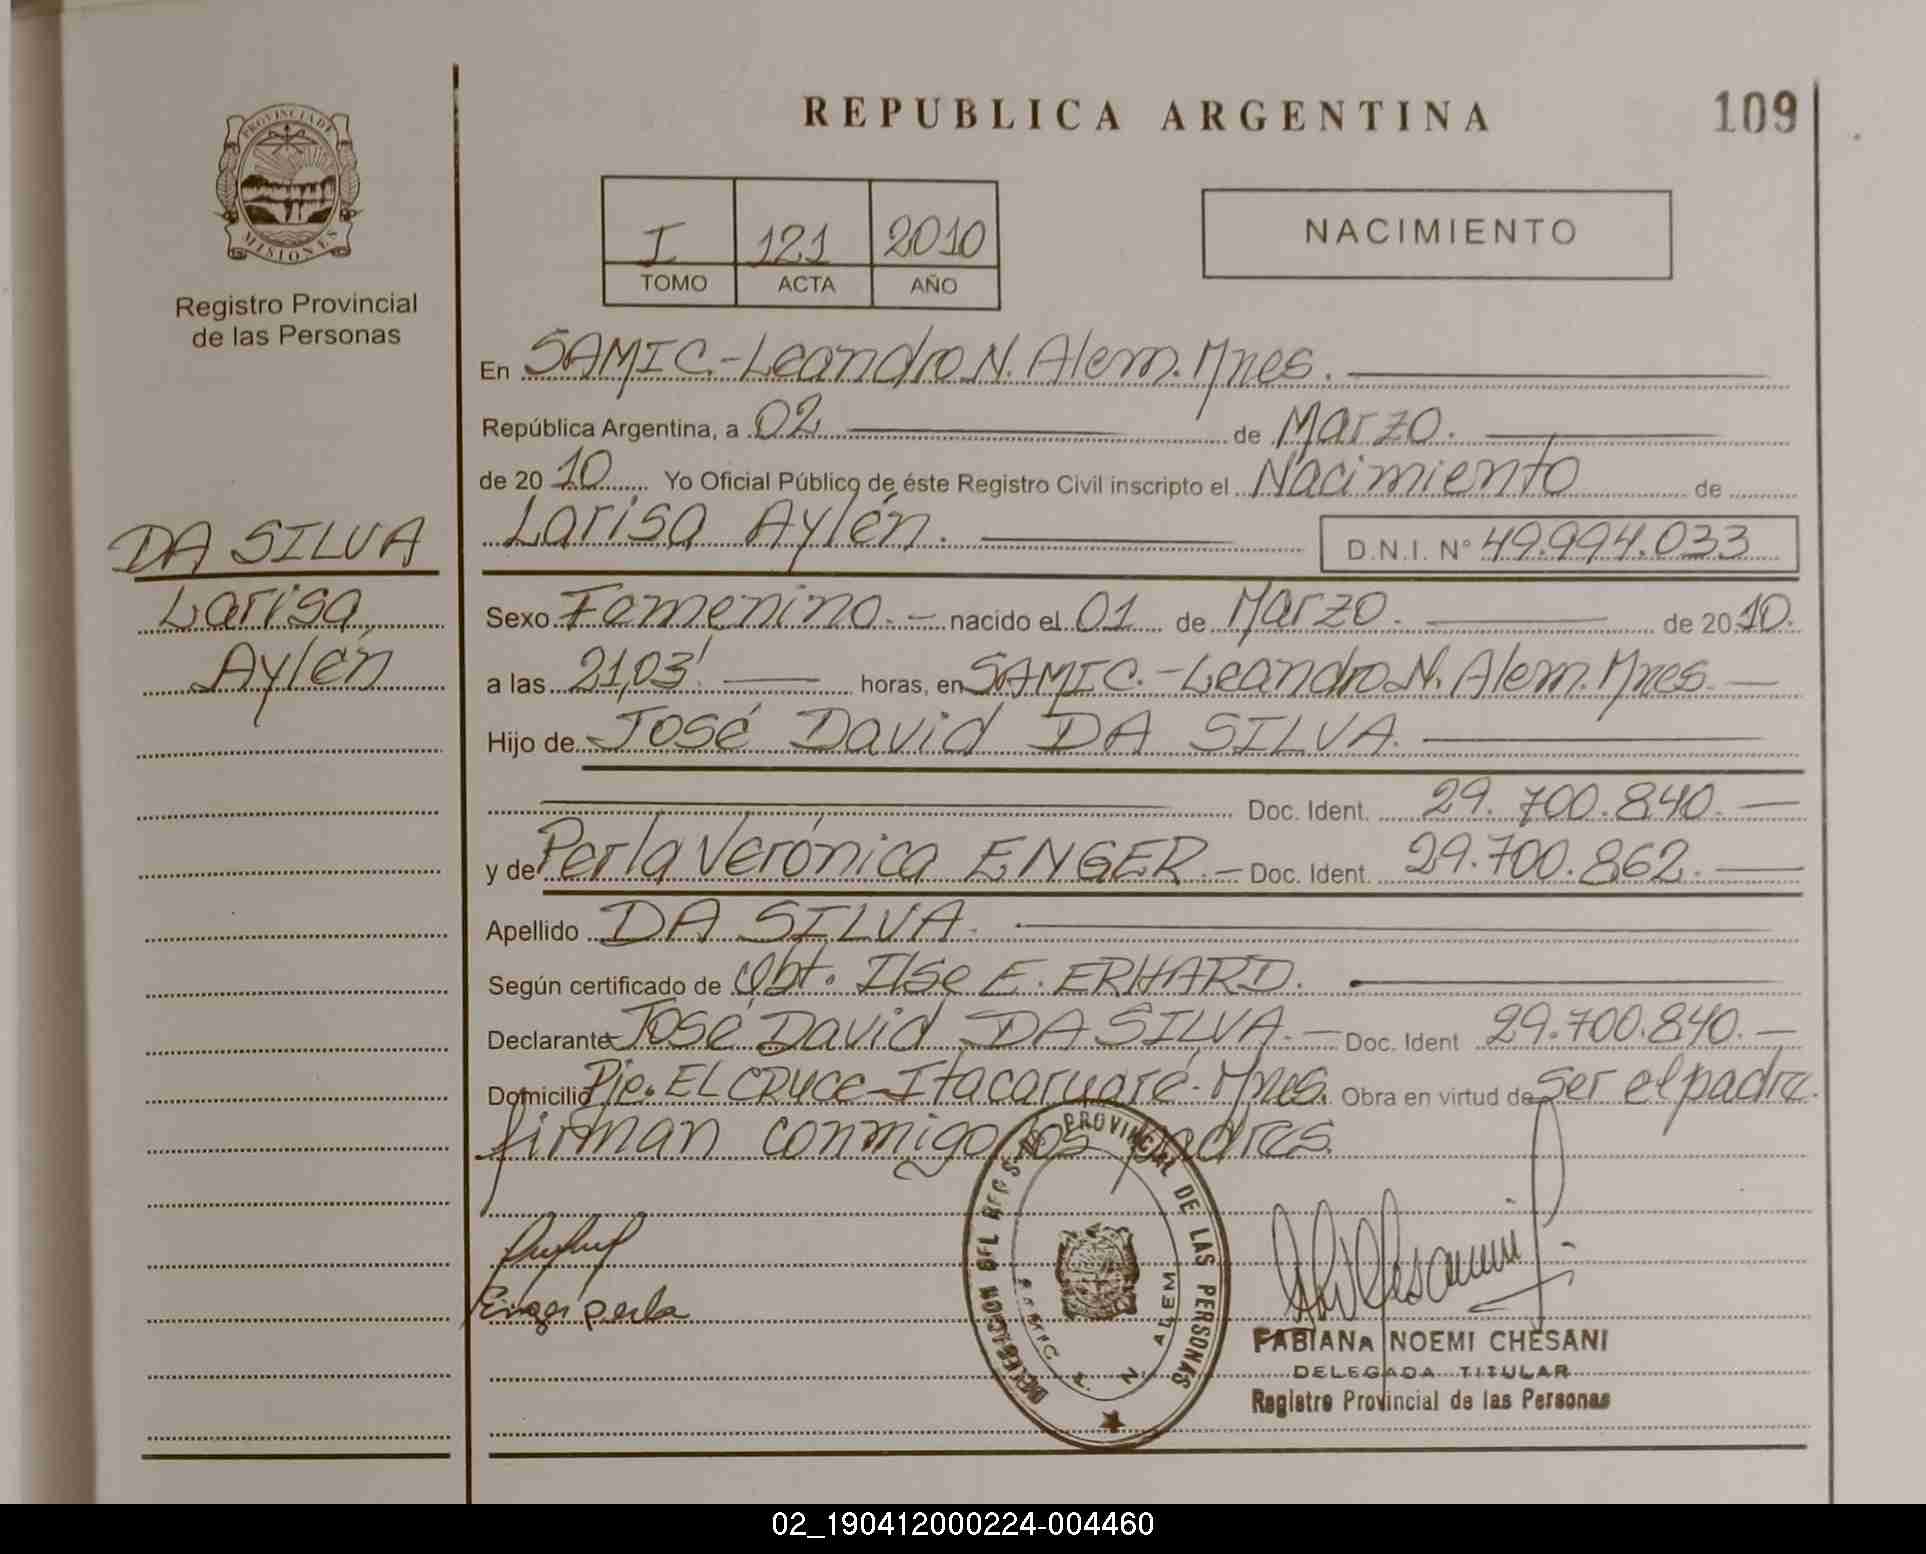 REPUBLICA ARGENTINA
109
PROVINCIA DE
MISIONES
Registro Provincial
de las Personas
I 121 2010
TOMO ACTA AÑO
NACIMIENTO
En SAMIC.-Leandro N. Alem. Mnes.
República Argentina, a 02 de Marzo.
de 20 10 Yo Oficial Público de éste Registro Civil inscripto el Nacimiento de
Larisa Aylén. D.N.I. N° 49.994.033
DA SILVA
Larisa
Aylén
Sexo Femenino.- nacido el 01 de Marzo. de 20 10.
a las 21,03' horas, en SAMIC.-Leandro N. Alem. Mnes.
Hijo de José David DA SILVA.
Doc. Ident. 29.700.840.
y de Perla Verónica ENGER.- Doc. Ident. 29.700.862.
Apellido DA SILVA.
Según certificado de Obt. Ilse E. ERHARD.
Declarante José David DA SILVA.- Doc. Ident 29.700.840.
Domicilio Pje. EL CRUCE-Itacaruaré-Mnes. Obra en virtud de ser el padre.
firman conmigo los padres.
Enger perla
DELEGACION DEL REGISTRO PROVINCIAL DE LAS PERSONAS
SAMIC L. N. ALEM
FABIANA NOEMI CHESANI
DELEGADA TITULAR
Registro Provincial de las Personas
02_190412000224-004460